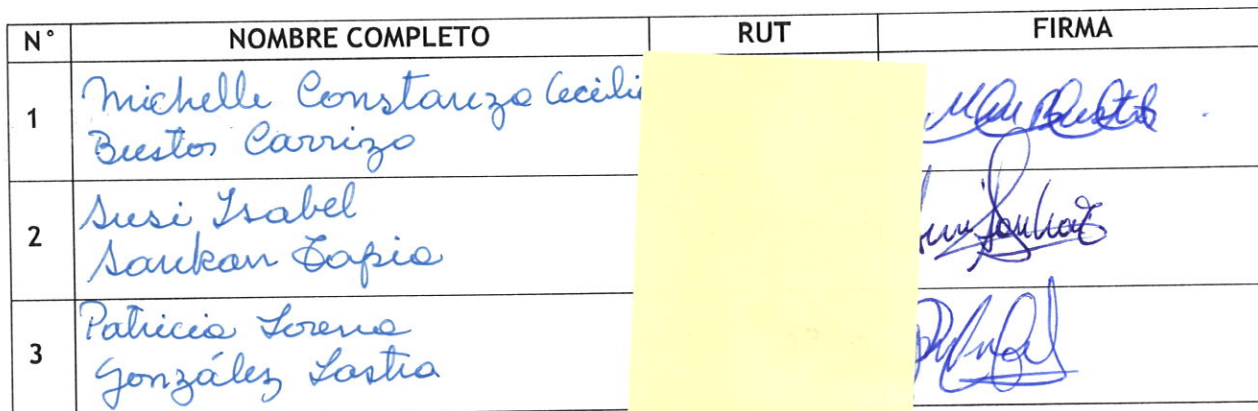 N° NOMBRE COMPLETO RUT FIRMA
1 Michelle Constanza Cecili
Bustos Carrizo
2 Susi Isabel
Sankan Tapia
3 Patricia Lorena
González Lastra